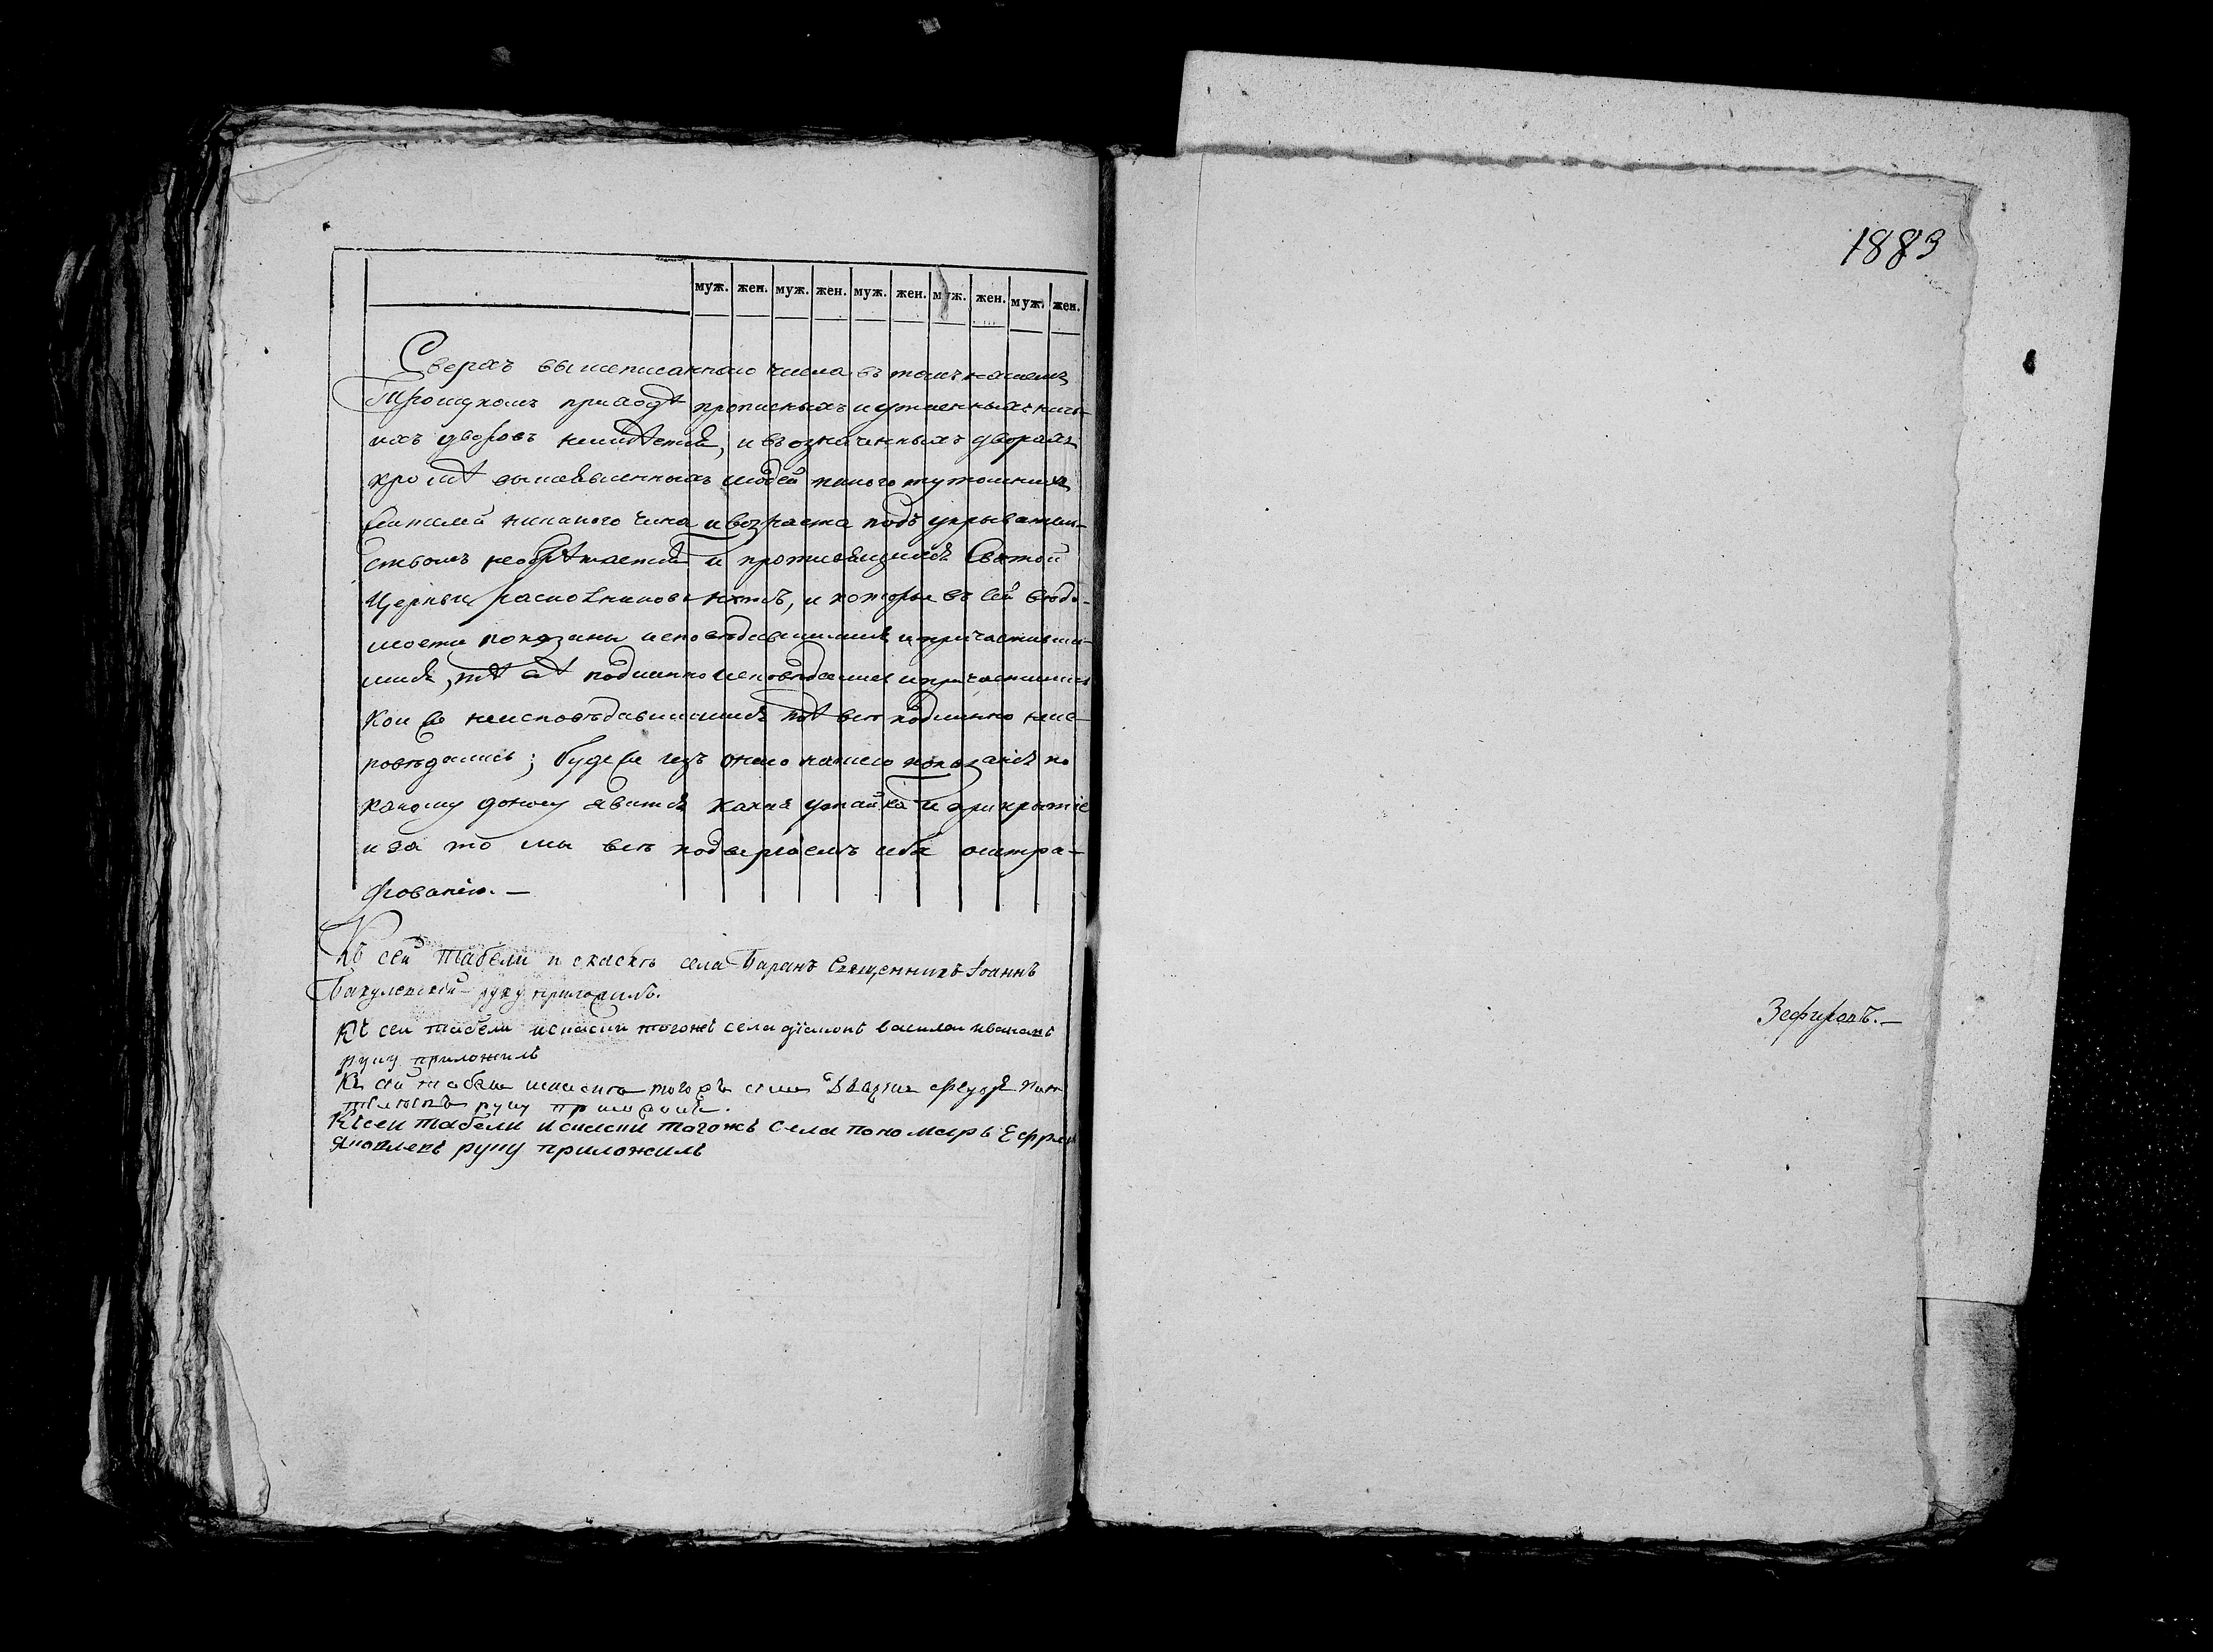 муж. жен. муж. жен. муж. жен. муж. жен. муж. жен.
Сверхъ вышеписаннаго числа въ томъ нашемъ
приходѣ прописныхъ и утаенныхъ ничь-
ихъ дворовъ неимѣется, и въ означенныхъ дворахъ
кромѣ выявленныхъ людей никого тутошнихъ
жителей никакого чина и возраста подъ укрыватель-
ствомъ необрѣтается и противящихся Святой
Церкви раскольниковъ нѣтъ, и которые въ сей вѣдо-
мости показаны исповѣдавшимися и причастивши-
мися, тѣ всѣ подлинно исповѣдались и причастились
кои же неисповѣдавшимися тѣ всѣ подлинно неис-
повѣдались; буде же изъ онаго нашего показанія по
какому доносу явится какая утайка и прикрытіе
и за то мы всѣ подвергаемъ себя оштра-
фованію. —
Къ сей табели и скаскѣ села Баранъ Священникъ Іоаннъ
руку приложилъ.
Къ сеи табели искаски тогожъ села діаконъ василеи ивановъ
руку приложилъ
Къ сей табели искаске тогожъ села
руку приложилъ.
Къ сеи табели искаски тогожъ села пономарь
Яковлевъ руку приложилъ
1883
Зефировъ. —